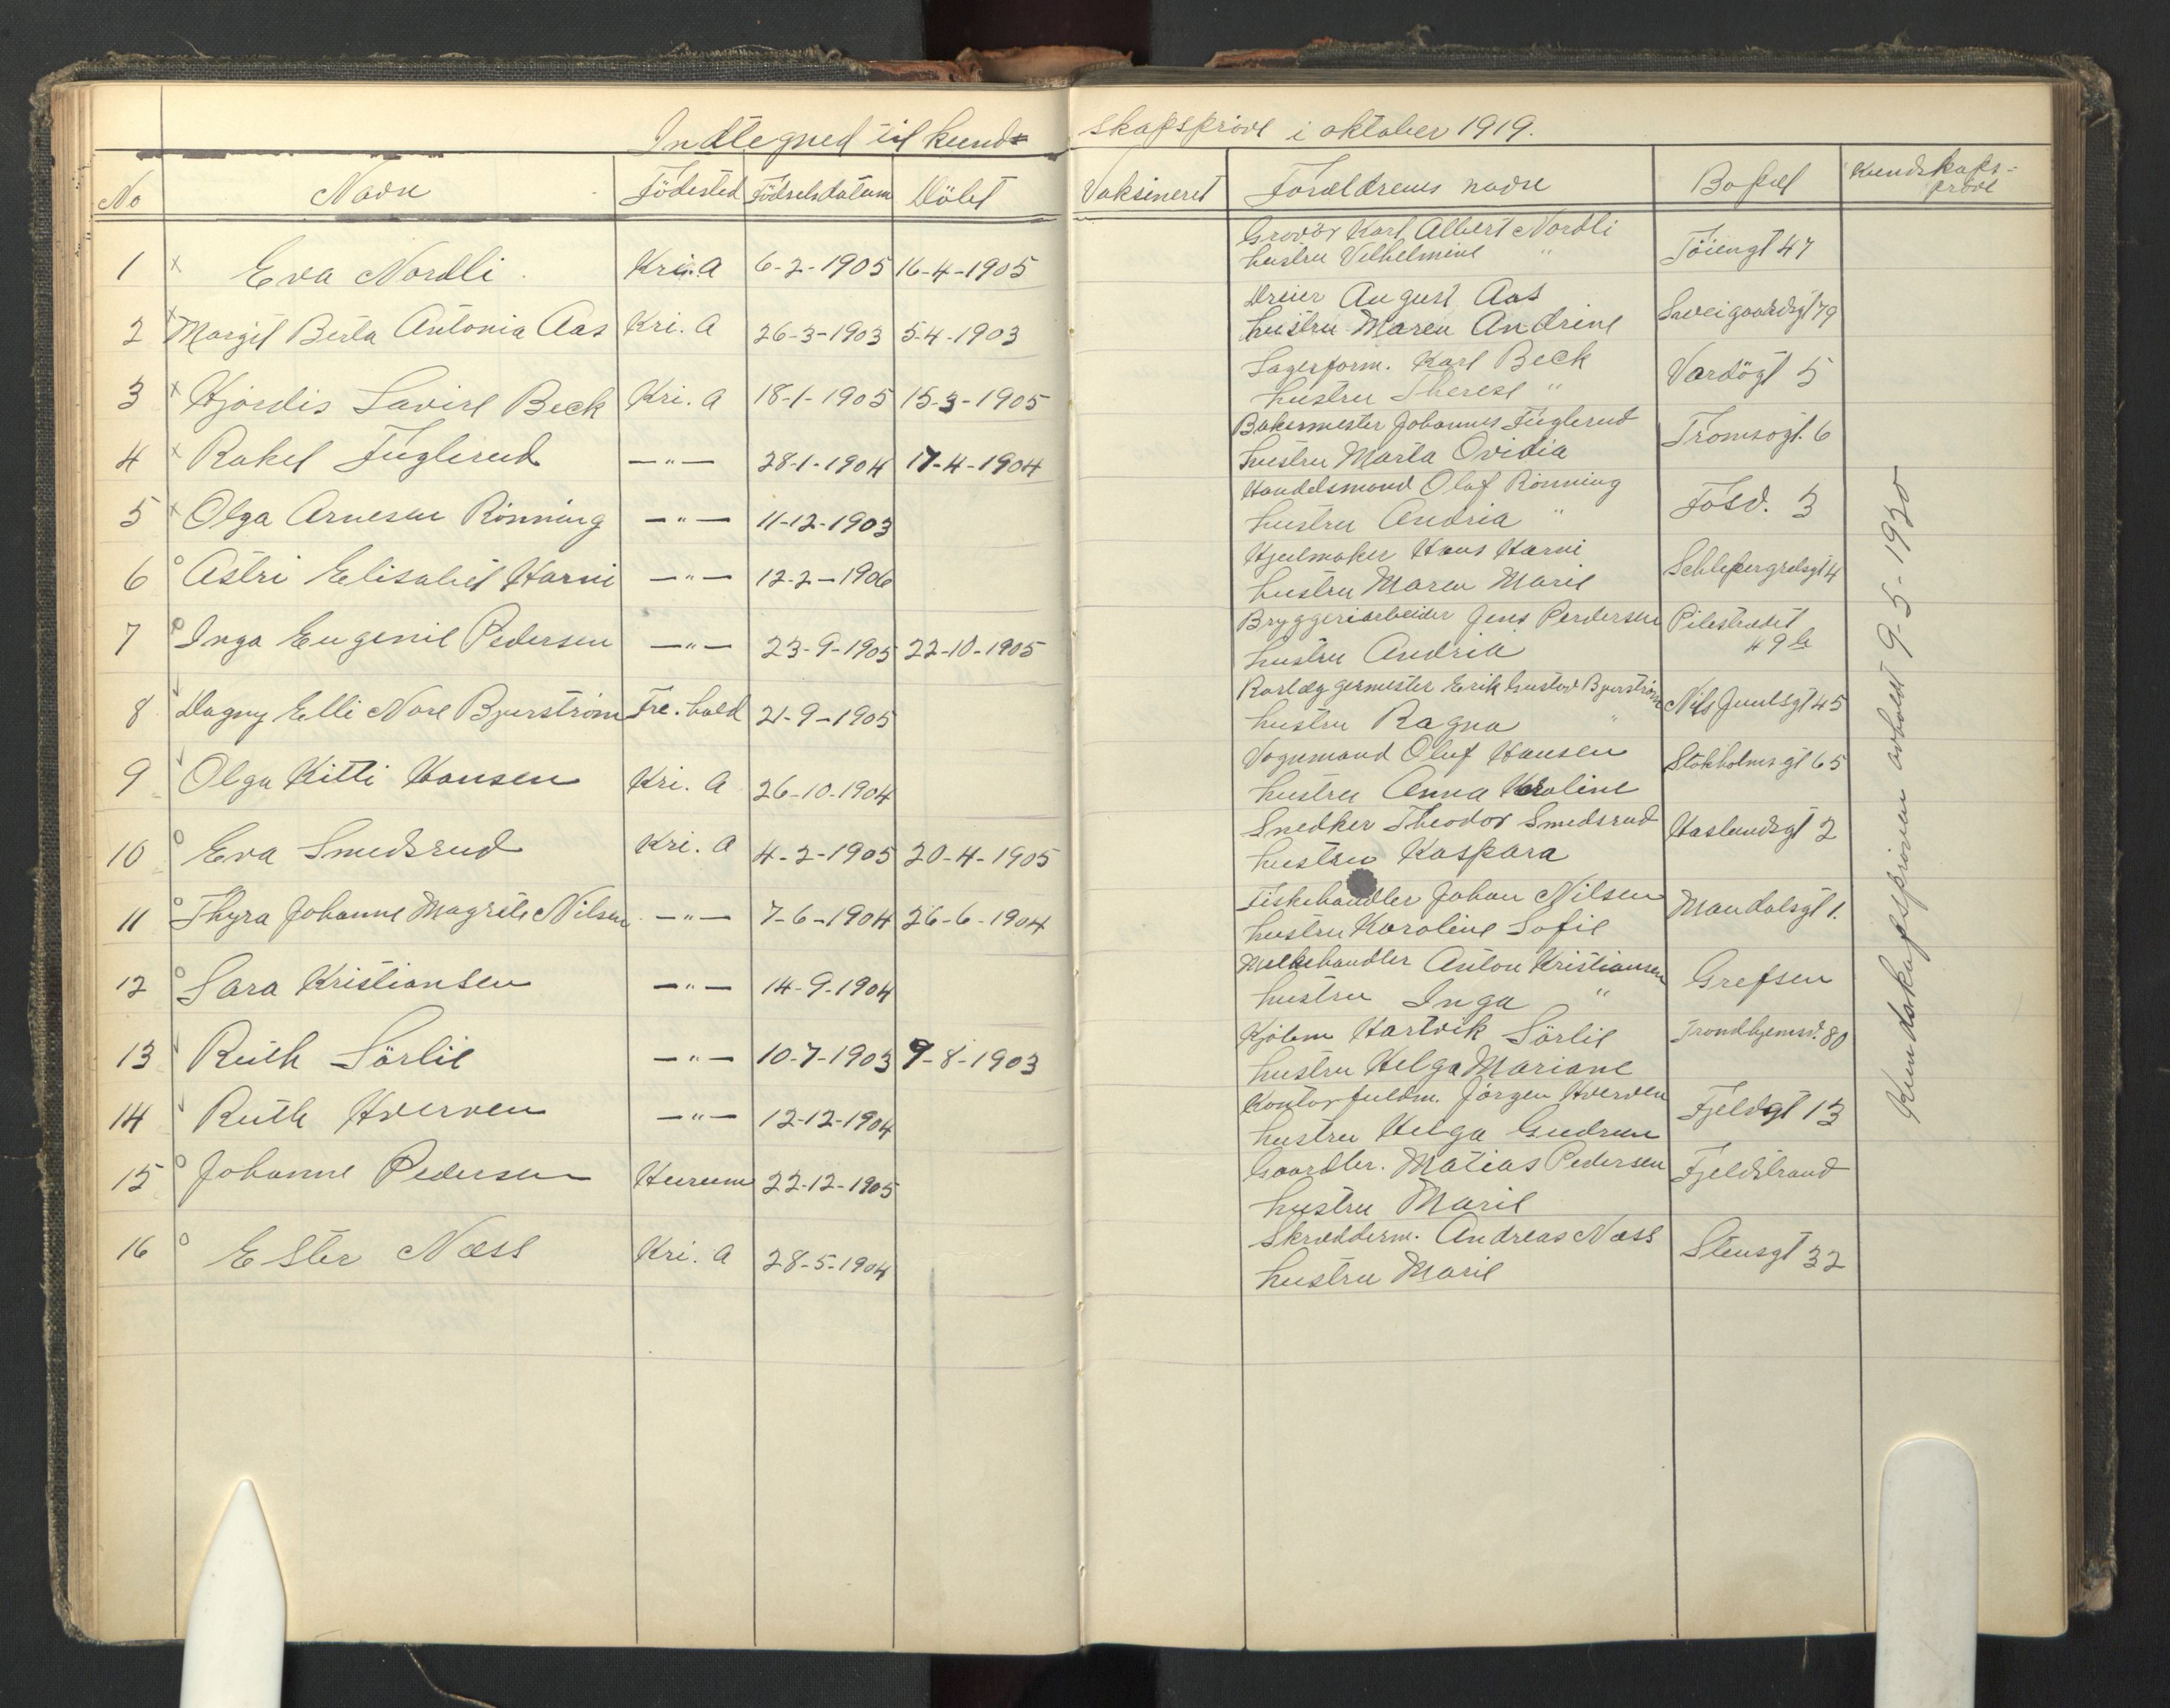 Indtegned til kundskapsprøve i oktober 1919.
No Navn Födested Födselsdatum Döbt Vaksineret Forældrenes navne Bopæl Kundskapsprøve
1 x Eva Nordli Kri.a 6-2-1905 16-4-1905 Gravör Karl Albert Nordli Töiengt 47
hustru Vilhelmine "
2 x Margit Berta Antonia Aas Kri. a 26-3-1903 5-4-1903 Dreier August Aas Sweigaardsgt 79
hustru Maren Andrine
3 x Hjördis Lovise Beck Kri. a 18-1-1905 15-3-1905 Lagerform. Karl Beck Vardögt 5
hustru Therese "
4 x Rakel Fuglerud —"— 28-1-1904 17-4-1904 Bakermester Johannes Fuglerud Tromsøgt. 6
hustru Marta Ovidia
5 x Olga Arnesen Rönning —"— 11-12-1903 Handelsmand Olaf Rönning Fosv. 3
hustru Andria "
6 o Astri Elisabet Harni —"— 12-2-1906 Hjulmaker Hans Harni Schleppegrelsgt 4
hustru Maren Marie
7 o Inga Eugenie Pedersen —"— 23-9-1905 22-10-1905 Bryggeriarbeider Jens Perdersen Pilestrædet
hustru Andria 49 b
8 Dagny Elli Nore Bjurström Fre.hald 21-9-1905 Rørlæggermester Erik Gustav Bjurström Nils Juulsgt 45
hustru Ragna "
9 Olga Kitti Hansen Kri. a 26-10-1904 Vognmand Oluf Hansen Stokholmsgt 65
hustru Anna Karoline
10 o Eva Smedsrud Kri. a 4-2-1905 20-4-1905 Snedker Theodor Smedsrud Haslundsgt 2
hustru Kaspara
11 o Thyra Johanne Magrete Nilsen —"— 7-6-1904 26-6-1904 Fiskehandler Johan Nilsen Mandalsgt 1.
hustru Karoline Sofie
12 o Sara Kristiansen —"— 14-9-1904 Melkehandler Anton Kristiansen Grefsen
hustru Inga "
13 Ruth Sörlie —"— 10-7-1903 9-8-1903 Kjöbm Hartvik Sörlie Trondhjemsv. 80
hustru Helga Mariane
14 Ruth Hverven —"— 12-12-1904 Kontorfuldm. Jörgen Hverven Fjeldgt 13
hustru Helga Gudrun
15 o Johanne Pedersen Hurum 22-12-1905 Gaardbr. Matias Pedersen Fjeldstrand
hustru Marie
16 o Ester Næss Kri. a 28-5-1904 Skrædderm. Andreas Næss Stensgt 32
hustru Marie
Kundskapsprøven avholdt 9-5-1920